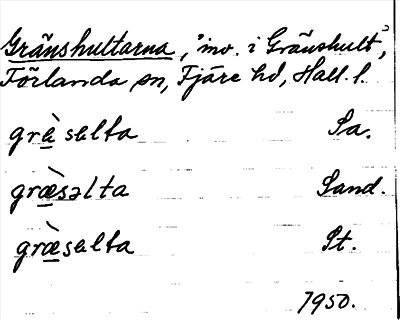 Gränshultarna, "inv. i Gränshult",
Förlanda sn, Fjäre hd, Hall. l.
grɛ̀selta Sa.
græ̀səlta Sand.
græ̀selta St.
1950.